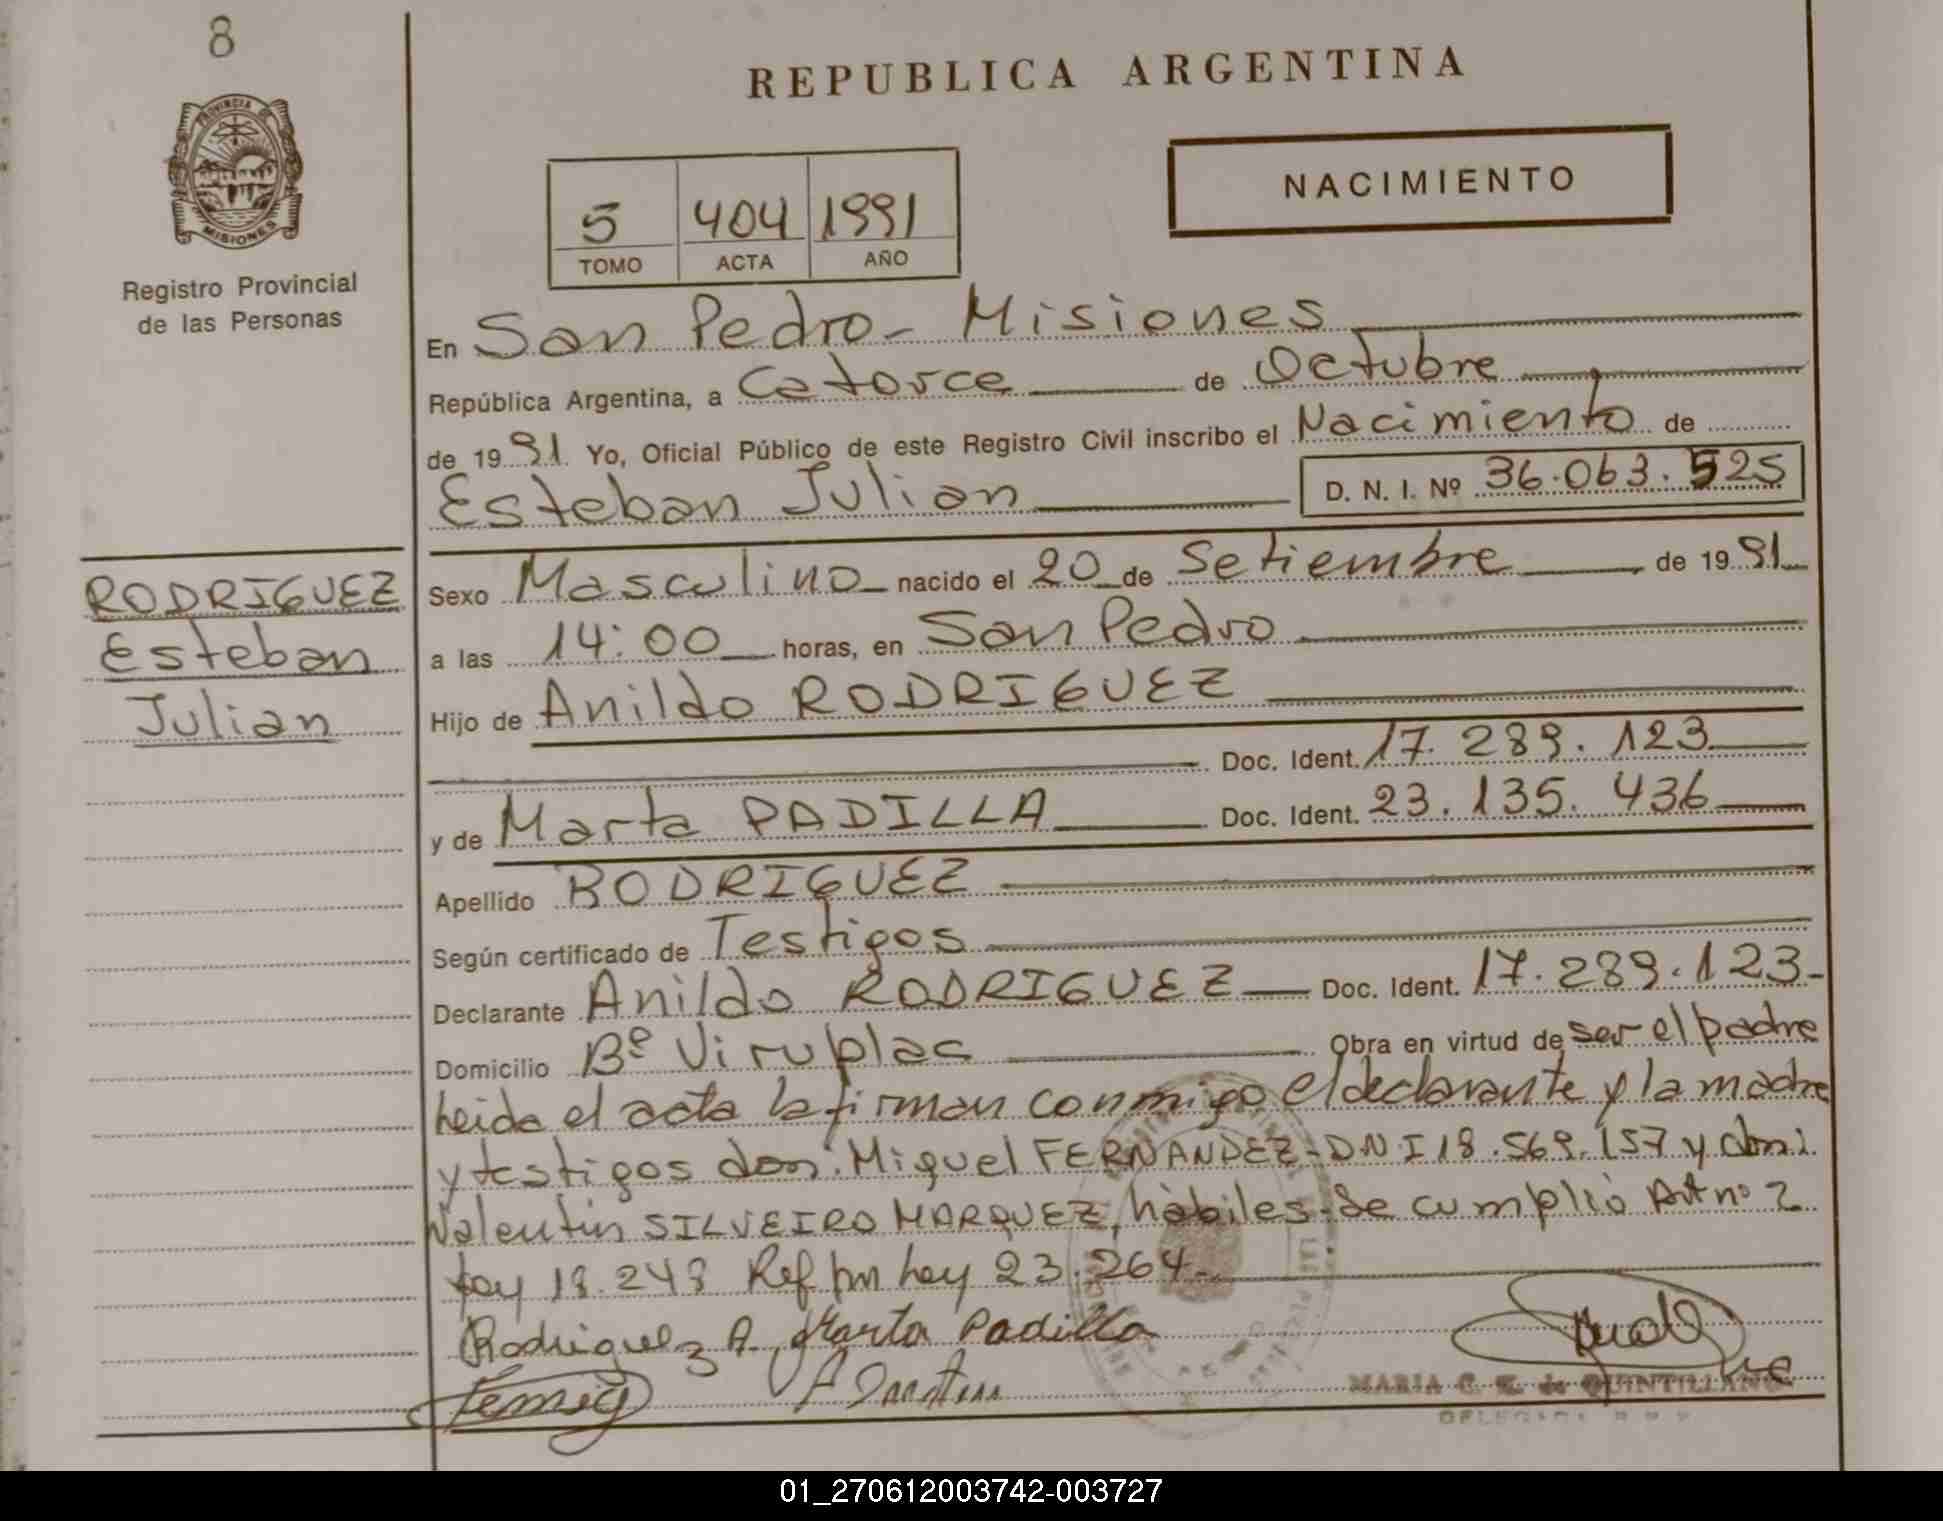 8
PROVINCIA DE
MISIONES
Registro Provincial
de las Personas
REPUBLICA ARGENTINA
NACIMIENTO
5 404 1991
TOMO ACTA AÑO
En San Pedro - Misiones
República Argentina, a Catorce de Octubre
de 1991 Yo, Oficial Público de este Registro Civil inscribo el Nacimiento de
Esteban Julian D. N. I. Nº 36.063.525
RODRIGUEZ
Esteban
Julian
Sexo Masculino nacido el 20 de Setiembre de 1991
a las 14:00 horas, en San Pedro
Hijo de Anildo RODRIGUEZ
Doc. Ident. 17.289.123
y de Marta PADILLA Doc. Ident. 23.135.436
Apellido RODRIGUEZ
Según certificado de Testigos
Declarante Anildo RODRIGUEZ Doc. Ident. 17.289.123-
Domicilio Bº Viruplac Obra en virtud de ser el padre
Leida el acta la firman conmigo el declarante y la madre
y testigos don: Miguel FERNANDEZ - DNI 18.569.157 y
Valentin SILVEIRO MARQUEZ, hàbiles. Se cumpliò Art nº 2
Ley 18.248 Ref por Ley 23.264.-
Rodriguez A. Marta Padilla
MARIA C. de QUINTILLAN
01_270612003742-003727